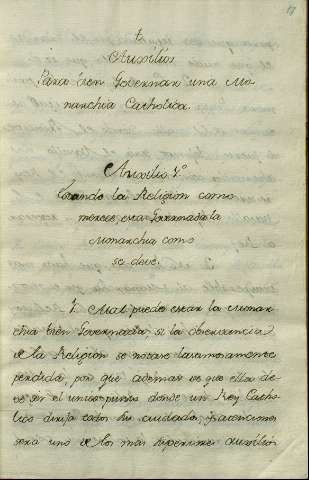 Auxilios
Para bien Governar una Mo
narchia Catholica.
Auxilio 1º
Quando la Religion como
merece, esta Governada la
Monarchia como
se deve.
1. Mal puede estar la Monar
chia bien Governada, si la observancia
de la Religion se notare lastimosamente
perdida, por que ademas de que ella de
ve ser el unico punto donde un Rey Catho
lico dirija todos sus cuidados, y atenciones
sera uno de los mas supremos auxilios